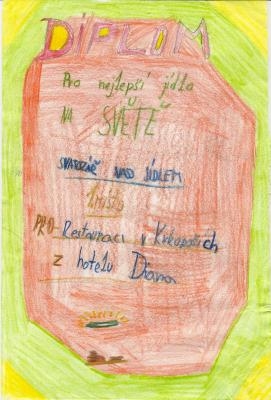 DIPLOM
Pro nejlepší jídla
NA SVĚTĚ
NAD JÍDLEM
1.místo
PRO Restauraci v Krkonoších
z hotelu Diana